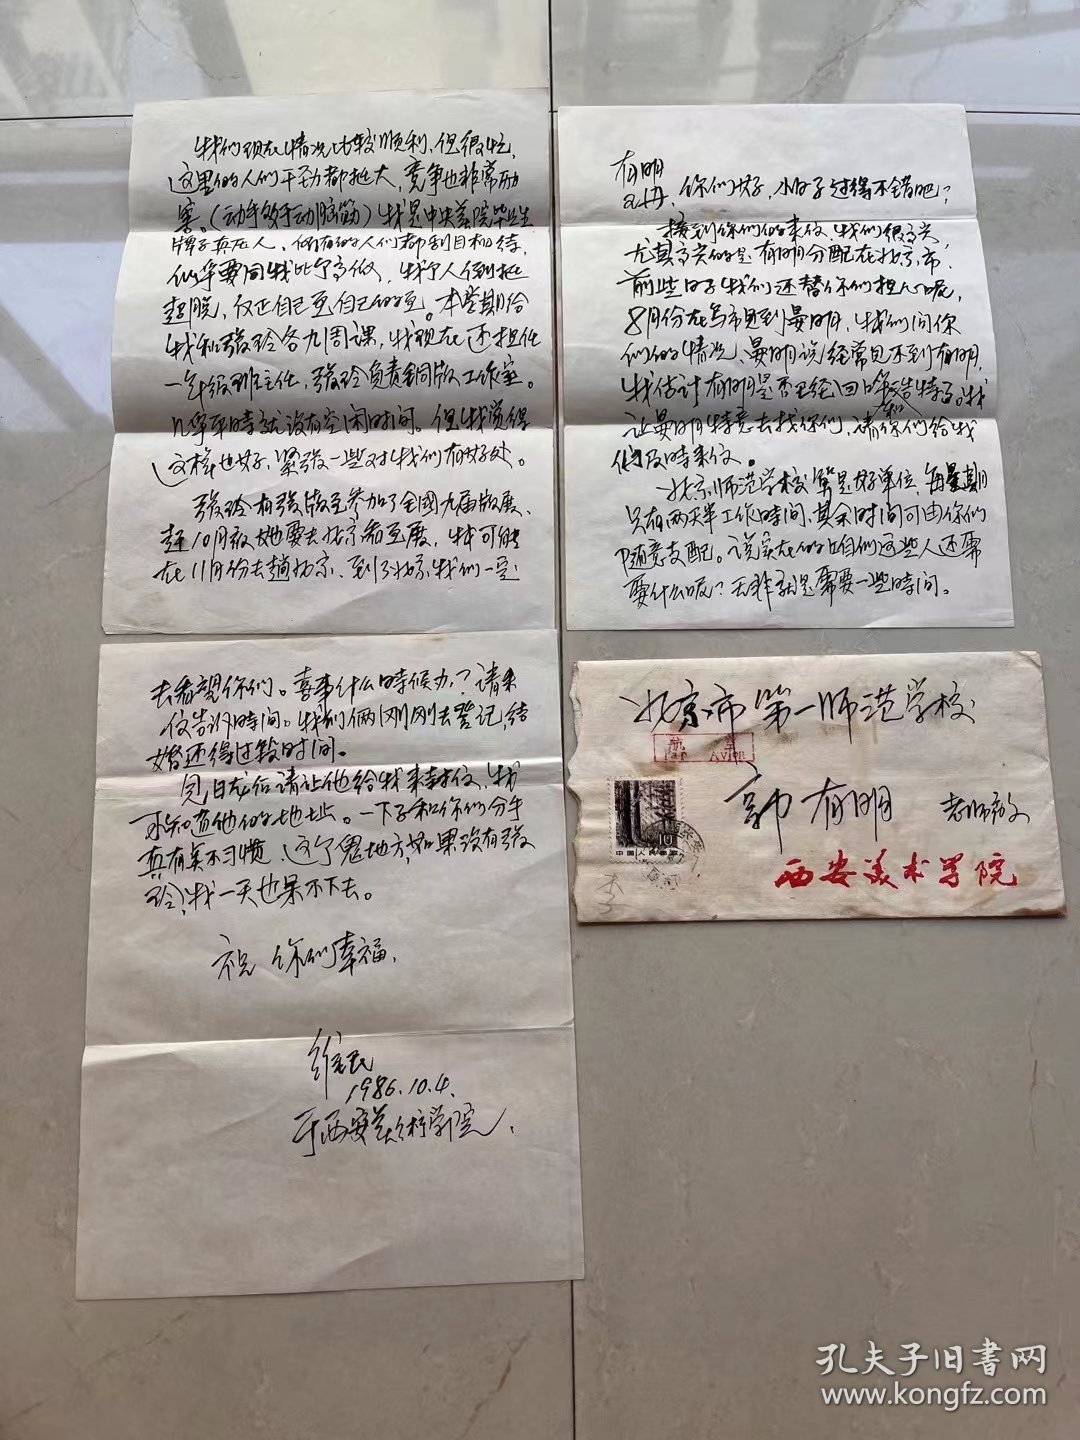 有明
丹,你们好,小日子过得不错吧?
接到你们的来信,我们很高兴,
尤其高兴的是有明分配在北京市,
前些日子我们还替你们担心呢,
8月份在乌市见到晏明,我们问你
们的情况,晏明说经常见不到有明,
我估计有明是否已经回
让晏明特意去找你们,请你们给我
们及時来信。
北京师范学校算是好单位,每星期
只有两天半工作時间,其余时间可由你们
随意支配。说实在的咱们这些人还需
要什么呢?无非就是需要一些時间。
我们现在情况比较顺利,但很忙,
这里的人们干劲都挺大,竞争也非常厉
害。(动手多于动脑筋)我是中央美院毕业生
牌子真左人,所有的人们都刮目相待,
似乎要同我比个高低,我个人倒挺
超脱,反正自己画自己的画。本学期给
我和张玲各九周课,我现在还担任
一年级班主任,张玲负责铜版工作室。
几乎平時就没有空闲时间。但我觉得
这样也好,紧张一些对我们有好处。
张玲有张版画参加了全國九届版展,
赶10月底她要去北京看画展,我可能
在11月份去趟北京,到了北京我们一定
去看望你们。喜事什么時候办?请来
信告诉时间。我们俩刚刚去登记,结
婚还得过段时间。
见日龙后请让他给我来封信,我
不知道他的地址。一下子和你们分手
真有点不习惯,这个鬼地方,如果没有张
玲,我一天也呆不下去。
祝 你们幸福,
维民
1986.10.4.
于西安美術学院,
北京市第一师范学校
航 空
Par Avion
郭有明 老师启
10
中国人民邮政
西安美术学院
孔夫子旧書网
www.kongfz.com